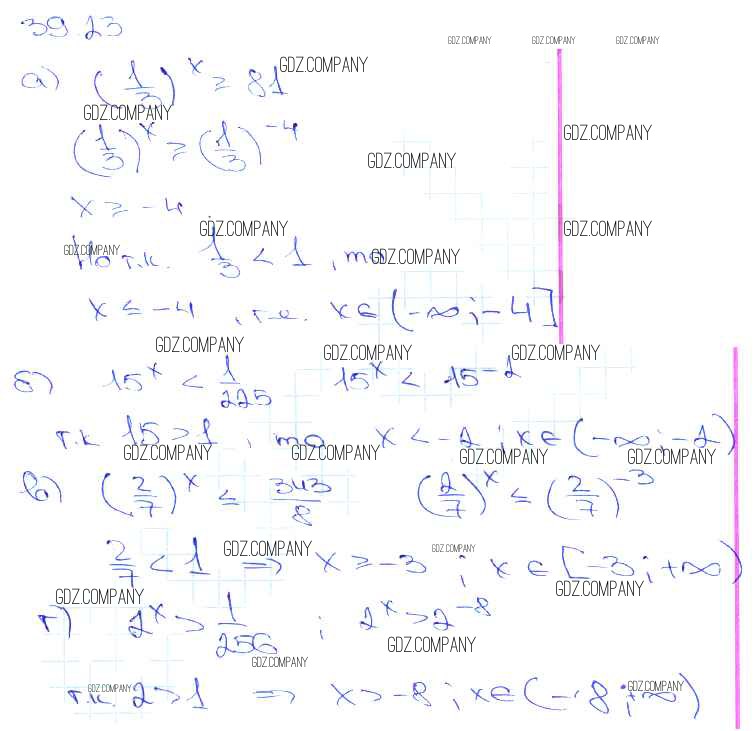 39.23
GDZ.COMPANY GDZ.COMPANY GDZ.COMPANY
а) (1/3)^x ≥ 81 GDZ.COMPANY
GDZ.COMPANY
(1/3)^x ≥ (1/3)^-4 GDZ.COMPANY GDZ.COMPANY
x ≥ -4
GDZ.COMPANY GDZ.COMPANY
GDZ.COMPANY GDZ.COMPANY
Но т.к. 1/3 < 1, то
x ≤ -4, т.е. x ∈ (-∞; -4]
GDZ.COMPANY GDZ.COMPANY GDZ.COMPANY
б) 15^x < 1/225 15^x < 15^-2
т.к 15 > 1, то x < -2; x ∈ (-∞; -2)
GDZ.COMPANY GDZ.COMPANY GDZ.COMPANY GDZ.COMPANY
в) (2/7)^x ≤ 343/8 (2/7)^x ≤ (2/7)^-3
GDZ.COMPANY GDZ.COMPANY
2/7 < 1 ⇒ x ≥ -3; x ∈ [-3; +∞)
GDZ.COMPANY GDZ.COMPANY
г) 2^x > 1/256; 2^x > 2^-8
GDZ.COMPANY GDZ.COMPANY
GDZ.COMPANY GDZ.COMPANY
т.к. 2 > 1 ⇒ x > -8; x ∈ (-8; +∞)